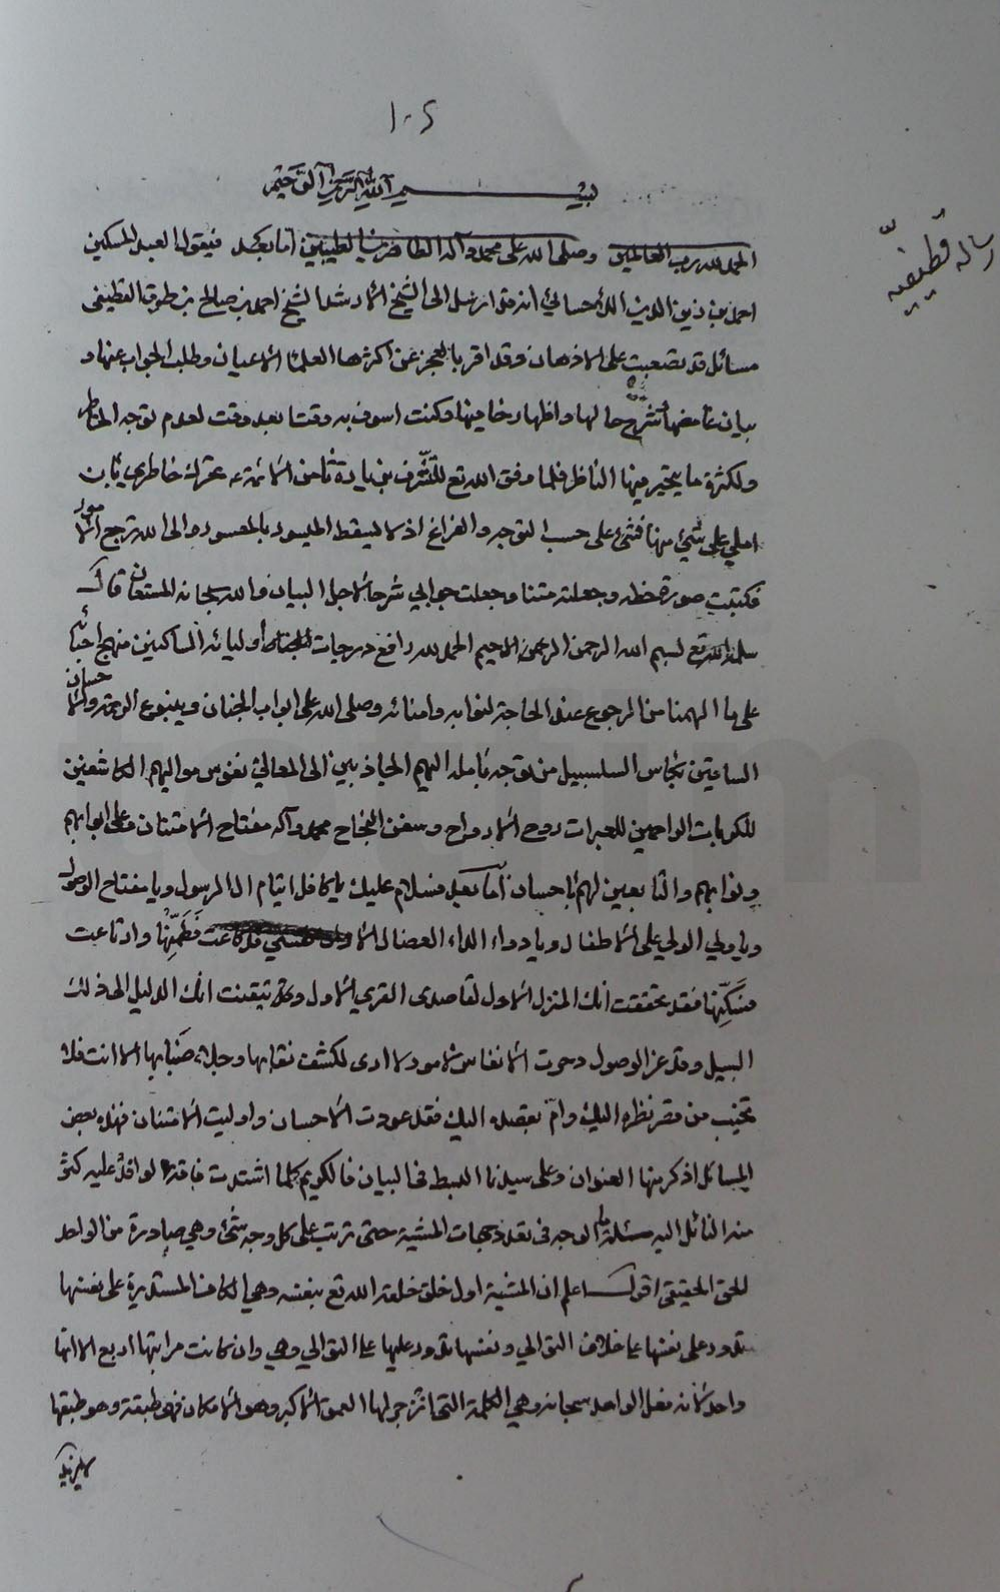 ١٠٢
رسالة قطيفية
بسم الله الرحمن الرحيم
الحمد لله رب العالمين وصلى الله على محمد وآله الطاهرين الطيبين اما بعد فيقول العبد المسكين
احمد بن زين الدين الاحسائي انه قد ارسل الى الشيخ الارشد الشيخ احمد بن صالح بن طوق القطيفي
مسائل قد تصعبت على الاذهان وقد اقر بالعجز عن اكثرها العلماء الاعيان وطلب الجواب عنها و
بيان غامضها وشرح حالها واظهار خافيها وكنت اسوف به وقتا بعد وقت لعدم توجه الخاطر
ولكثرة ما يتحير فيها الناظر فلما وفق الله تع للتشرف بزيادة ثامن الائمة ع تحرك خاطري بان
املي على شيء منها فشيء على حسب التوجه والفراغ اذ لا يسقط الميسور بالمعسور والى الله ترجع الامور
فكتبت صورة خطه وجعلته متنا وجعلت جوابي شرحا لاجل البيان والله سبحانه المستعان قال
سلمه الله تع بسم الله الرحمن الرحيم الحمد لله رافع درجات اوليائه السالكين منهج احبائه
على ما الهمنا من الرجوع عند الحاجة لنوابه وامنائه وصلى الله على ابواب الجنان وينبوع الرحمة والاحسان
الساقين بكأس السلسبيل من توجه بأمله اليهم الجاذبين الى المعالي نفوس مواليهم الكاشفين
للكربات الراحمين للعبرات روح الارواح وسفن النجاح محمد وآله مفتاح الامتنان وعلى ابوابهم
ونوابهم والتابعين لهم باحسان اما بعد فسلام عليك يا كافل ايتام آل الرسول ويا مفتاح الوصول
ويا ولي الولي على الاطفال ويا دواء الداء العضال الا وان نفسي قد جاعت فطمنها وارتاعت
فسكنها فقد تحققت انك المنزل الاول لقاصدي القرى الاول وتيقنت انك الدليل الى ذلك
السبيل وقد عز الوصول وحرت الانفاس ولا ارى لكشف نقابها وجلاء ضبابها الا انت فلا
تخيب من قصر نظره اليك وام بقصده اليك فقد عودت الاحسان واوليت الامتنان فهذه بعض
المسائل اذكر منها العنوان وعلى سيدنا البسط في البيان فالكريم كلما اشتدت فاقة الوافد عليه كثر
منه النائل اليه مسئلة ما الوجه في تعدد جهات المشية حتى ترتب على كل وجه شيء وهي صادرة من الواحد
الحق الحقيقي اقول اعلم ان المشية اول خلق خلقه الله تع بنفسه وهي الكاف المستديرة على نفسها
تدور على نفسها على خلاف التوالي ونفسها تدور عليها على التوالي وهي وان كانت مراتبها اربع الا انها
واحد لانه فعل الواحد سبحانه وهي الكلمة التي انزجر لها العمق الاكبر وهو الامكان فهي طبقه وهو طبقها